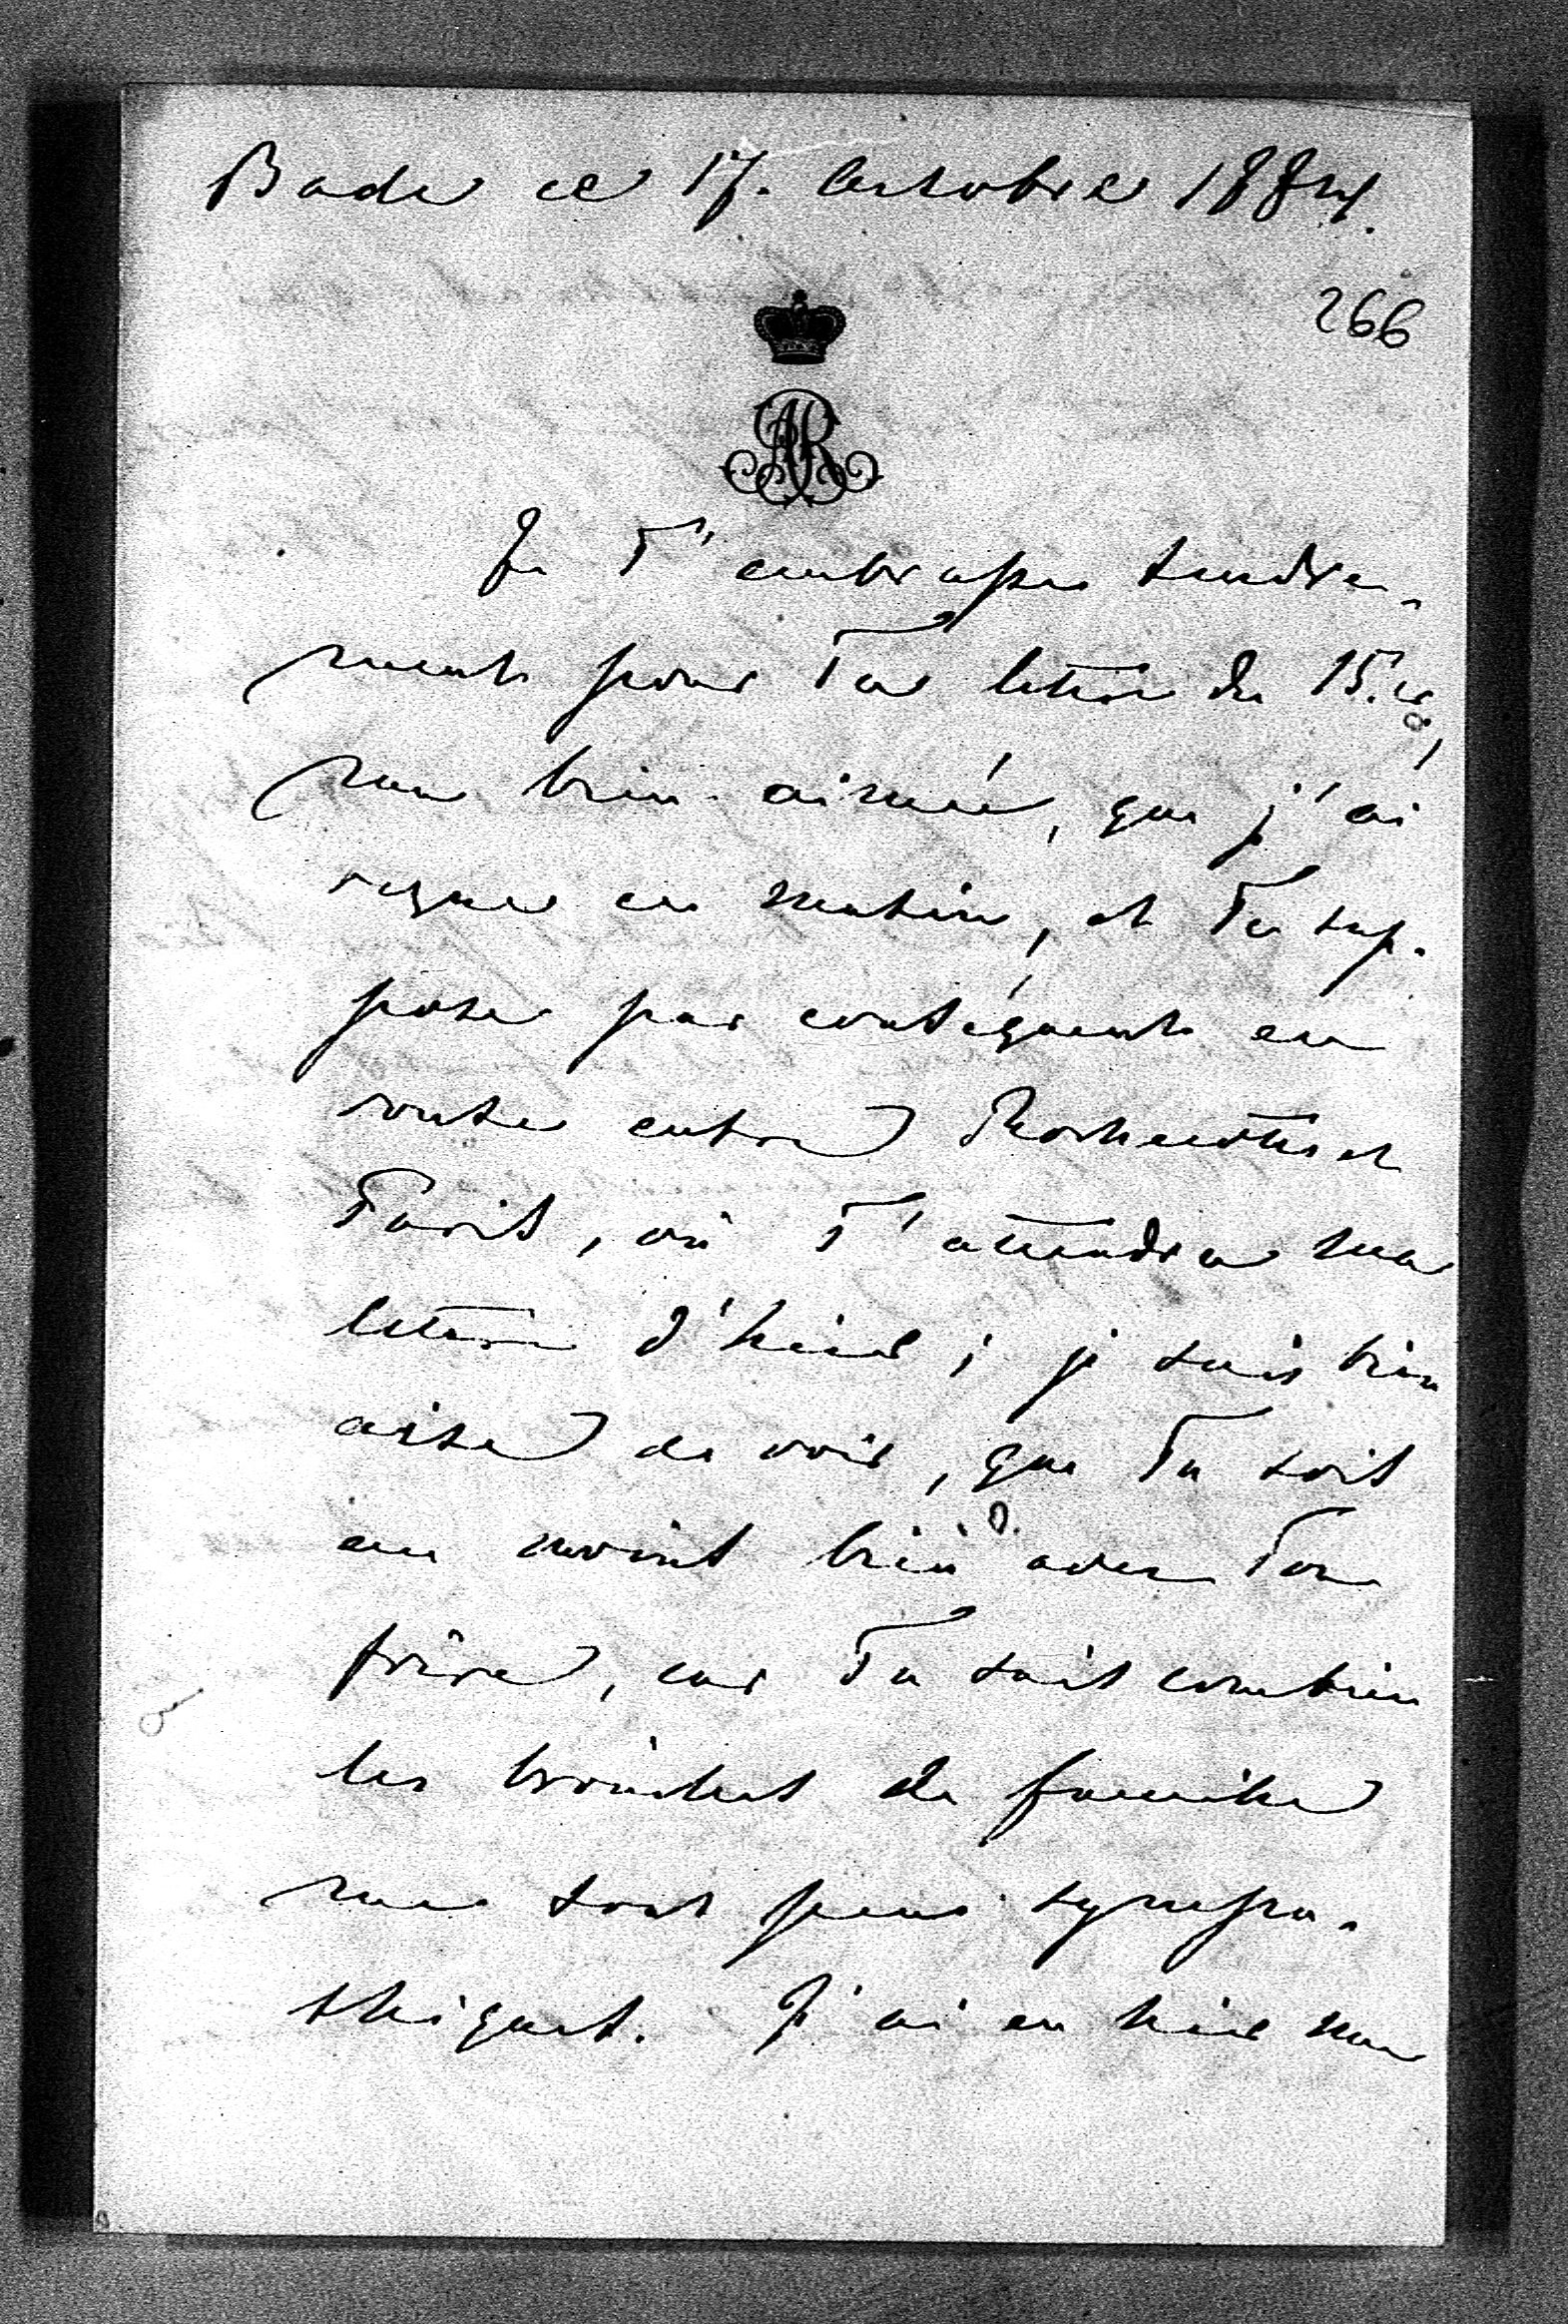 Bade ce 17. Octobre 1884.
266
AR
Je T'embrasse tendre-
ment pour Ta lettre du 15. ce,
ma bien-aimée, que j'ai
reçue ce matin, et Te sup-
pose par conséquent en
route entre et
Paris, où T'attendra ma
lettre d'hier; je suis bien
aise de voir, que Tu sois
au moins bien avec Ton
frère, car Tu sais combien
les brouilles de famille
me sont peu sympa-
thiques. J'ai eu hier ma